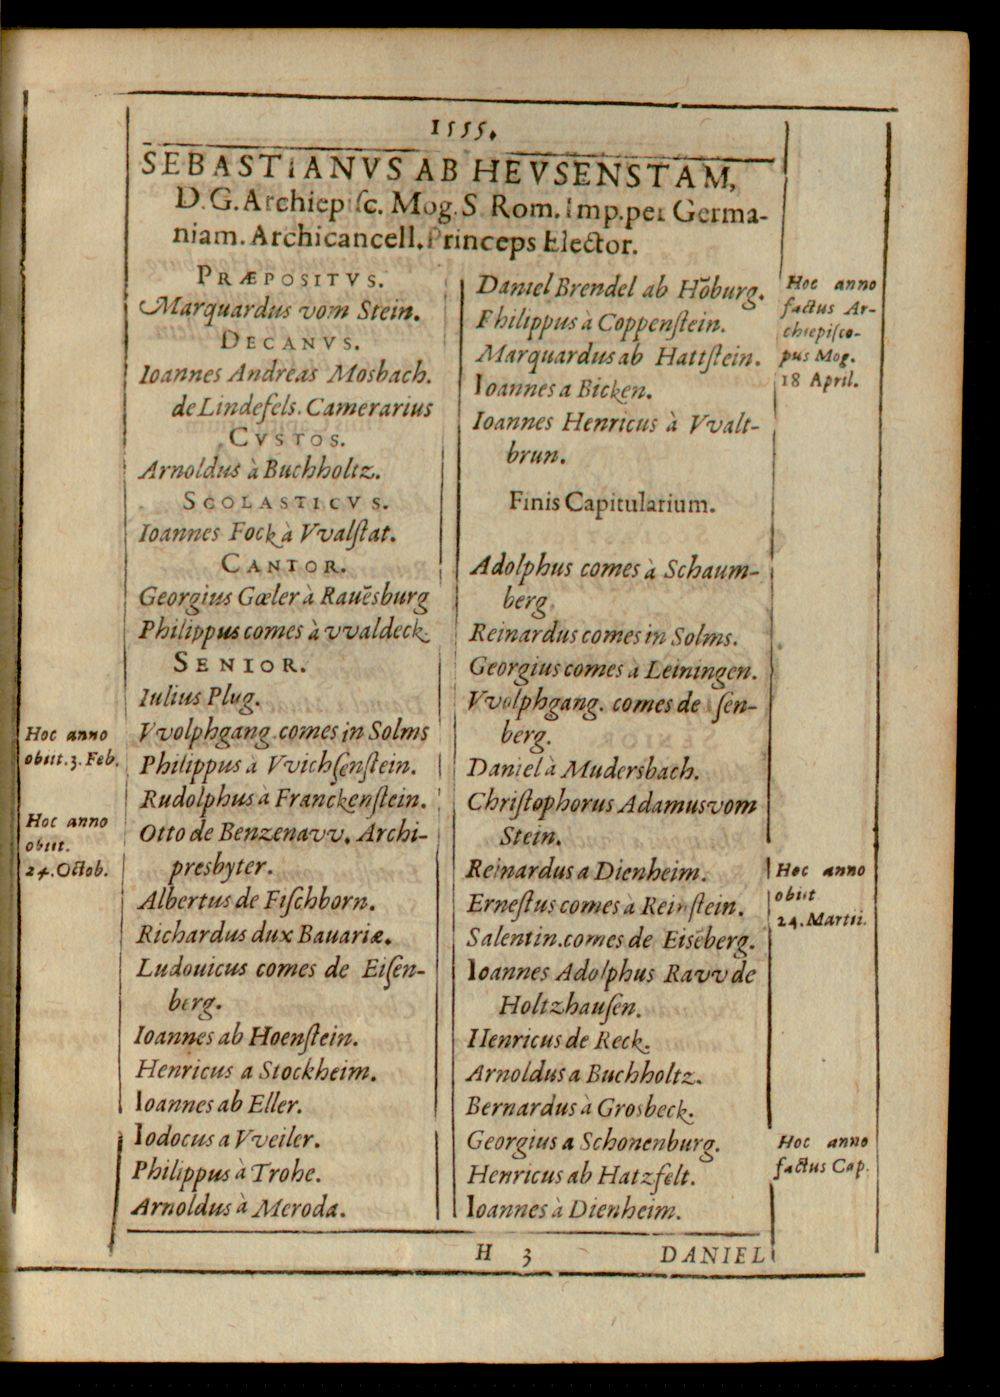 1555.
SEBASTIANVS AB HEVSENSTAM,
D.G. Archiepisc. Mog. S. Rom. Imp. per Germa-
niam. Archicancell. Princeps Elector.
PRÆPOSITVS.
Marquardus vom Stein.
DECANVS.
Ioannes Andreas Mosbach.
de Lindefels. Camerarius
CVSTOS.
Arnoldus à Buchholtz.
SCOLASTICVS.
Ioannes Fock à Vvalſtat.
CANTOR.
Georgius Gœler à Rauēsburg
Philippus comes à vvaldeck.
SENIOR.
Iulius Plug.
Hoc anno
obiit. 3. Feb.
Vvolphgang. comes in Solms
Philippus à Vvichſenſtein.
Rudolphus à Franckenſtein.
Hoc anno
obiit.
24. Octob.
Otto de Benzenavv. Archi-
presbyter.
Albertus de Fiſchborn.
Richardus dux Bauariæ.
Ludouicus comes de Eiſen-
berg.
Ioannes ab Hoenſtein.
Henricus a Stockheim.
Ioannes ab Eller.
Iodocus a Vveiler.
Philippus à Trohe.
Arnoldus à Meroda.
Daniel Brendel ab Hōburg.
Hoc anno
factus Ar-
chiepiſco-
pus Mog.
18 April.
Philippus à Coppenſtein.
Marquardus ab Hattſtein.
Ioannes a Bicken.
Ioannes Henricus à Vvalt-
brun.
Finis Capitularium.
Adolphus comes à Schaum-
berg.
Reinardus comes in Solms.
Georgius comes a Leiningen.
Vvolphgang. comes de Iſen-
berg.
Daniel à Mudersbach.
Chriſtophorus Adamus vom
Stein.
Reinardus a Dienheim.
Hoc anno
obiit
24. Martii.
Erneſtus comes a Reinſtein.
Salentin. comes de Eisēberg.
Ioannes Adolphus Ravv de
Holtzhauſen.
Henricus de Reck.
Arnoldus a Buchholtz.
Bernardus à Grosbeck.
Georgius a Schonenburg.
Hoc anno
factus Cap.
Henricus ab Hatzfelt.
Ioannes à Dienheim.
H 3
DANIEL